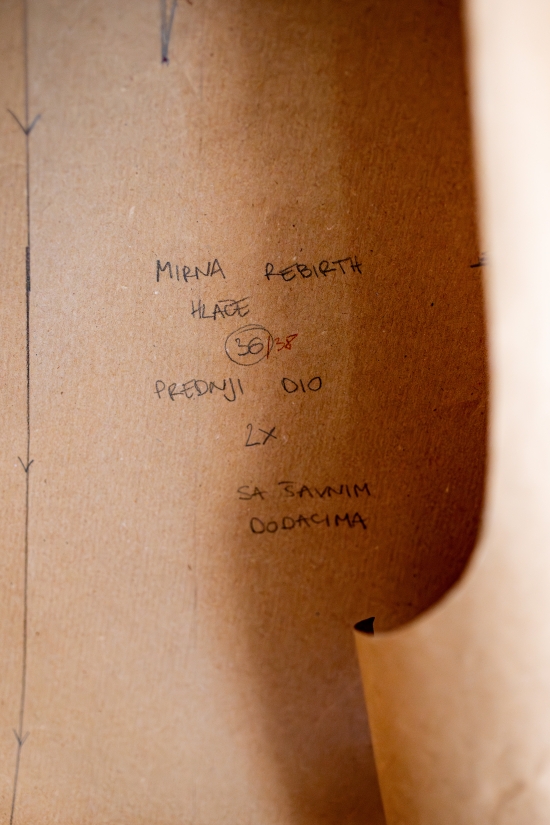 MIRNA REBIRTH
HLAČE
36/38
PREDNJI DIO
2X
SA ŠAVNIM
DODACIMA